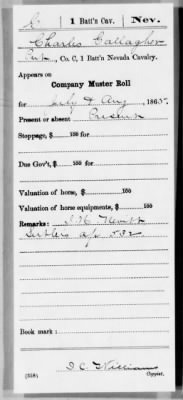 1 Batt'n Cav. Nev.
Charles Gallagher
Pvt., Co. C, 1 Batt'n Nevada Cavalry.
Appears on
Company Muster Roll
for July & Aug, 1865.
Present or absent Present
Stoppage, $ 100 for
Due Gov't, $ 100 for
Valuation of horse, $ 100
Valuation of horse equipments, $ 100
Remarks:
Sutlers a/c 532
Book mark:
(358)
D. C. Williams
Copyist.